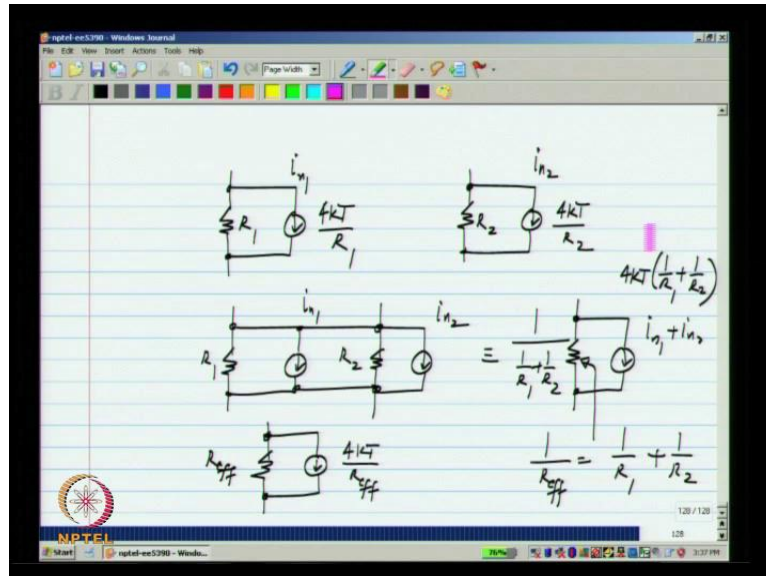 nptel-ee5390 - Windows Journal
File Edit View Insert Actions Tools Help
Page Width
B I
i_{n_1}
i_{n_2}
R_1
4kT/R_1
R_2
4kT/R_2
4kT(1/R_1 + 1/R_2)
i_{n_1}
i_{n_2}
R_1
R_2
≡ 1/(1/R_1 + 1/R_2)
i_{n_1} + i_{n_2}
R_{eff}
4kT/R_{eff}
1/R_{eff} = 1/R_1 + 1/R_2
128 / 128
128
NPTEL
Start
nptel-ee5390 - Windo...
76%
3:37 PM